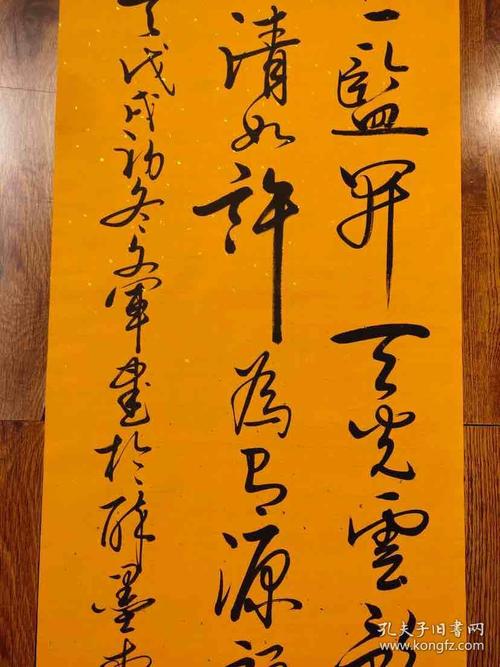 一鑑開天光雲影
清如許為有源頭
戊戌初冬文軍書於醉墨
孔夫子旧书网
www.kongfz.com